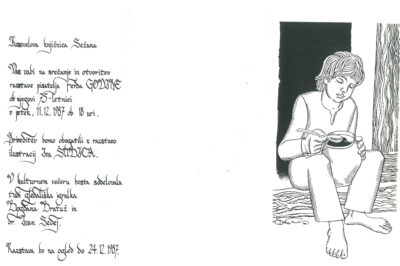 Kosovelova knjižnica Sežana
Vas vabi na srečanje in otvoritev
razstave pisatelja Ferda GODINE
ob njegovi 75-letnici
v petek, 11.12.1987 ob 18 uri.
Prireditev bomo obogatili z razstavo
ilustracij Iva
V kulturnem večeru bosta sodelovala
tudi gledališka igralka
Bogdana Bratuž in
dr. Ivan Sedej.
Razstava bo na ogled do 24.12.1987.